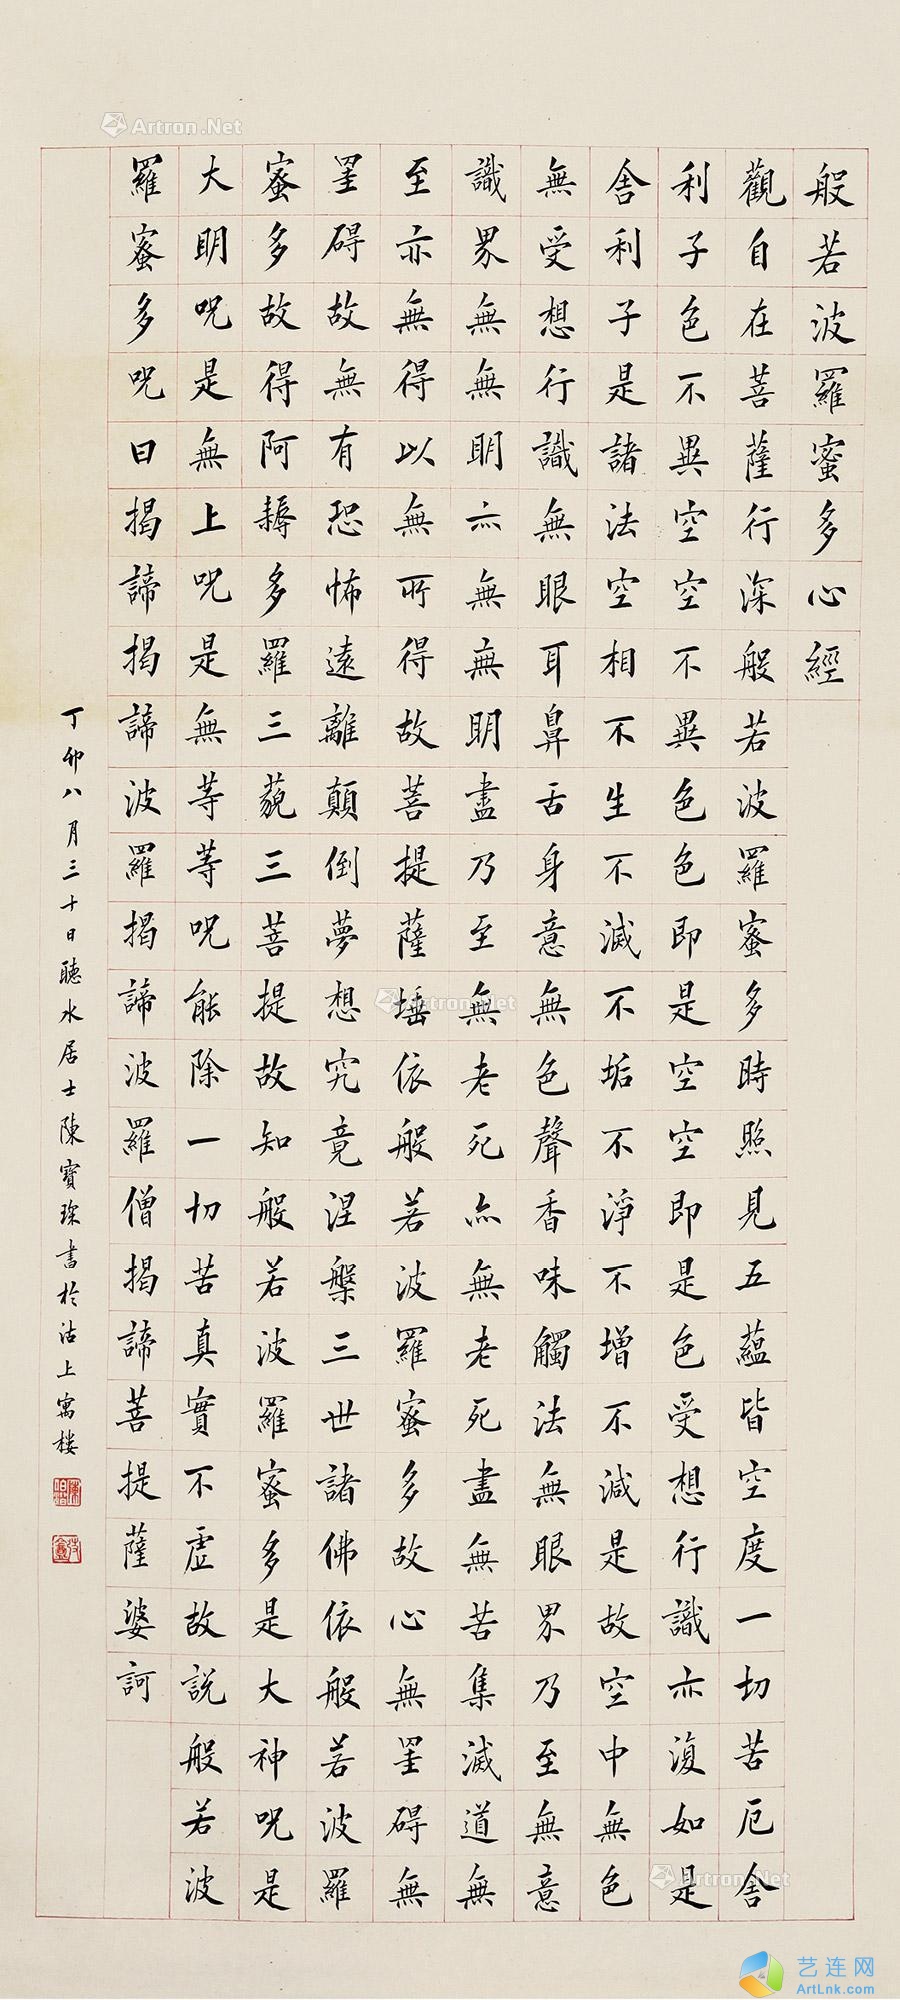 般若波羅蜜多心經
觀自在菩薩行深般若波羅蜜多時照見五蘊皆空度一切苦厄舍
利子色不異空空不異色色即是空空即是色受想行識亦復如是
舍利子是諸法空相不生不滅不垢不淨不增不減是故空中無色
無受想行識無眼耳鼻舌身意無色聲香味觸法無眼界乃至無意
識界無無明亦無無明盡乃至無老死亦無老死盡無苦集滅道無
至亦無得以無所得故菩提薩埵依般若波羅蜜多故心無罣碍無
罣碍故無有恐怖遠離顛倒夢想究竟涅槃三世諸佛依般若波羅
蜜多故得阿耨多羅三藐三菩提故知般若波羅蜜多是大神呪是
大明呪是無上呪是無等等呪能除一切苦真實不虛故說般若波
羅蜜多呪曰揭諦揭諦波羅揭諦波羅僧揭諦菩提薩婆訶
丁卯八月三十日聽水居士陳寶琛書於沽上寓樓
Artron.Net
Artron.Net
Artron.Net
艺连网
ArtLnk.com